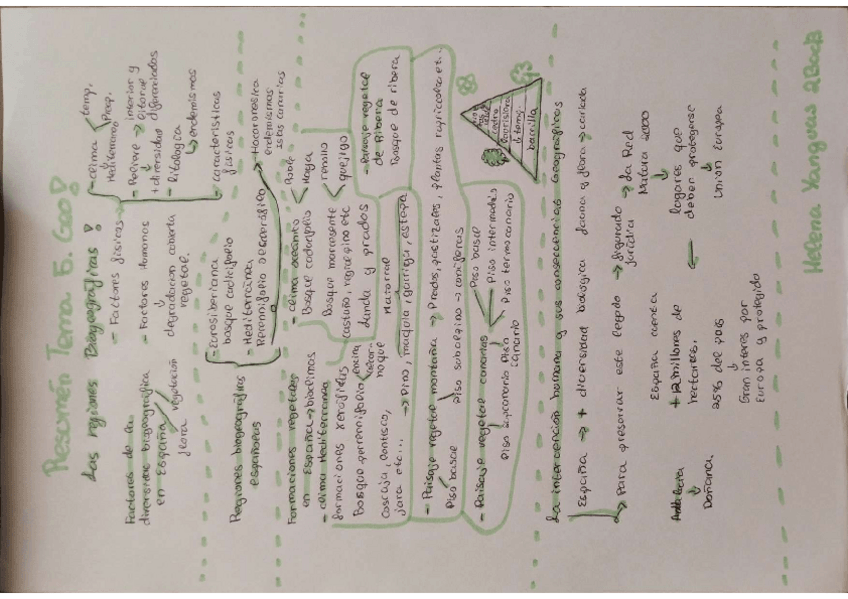 Resumén Tema 5. Geo
Las regiones Biogeográficas
Factores de la
diversidad biogeográfica
en España
flora
vegetación
- Factores físicos
- clima
Mediterráneo
temp.
Prep.
- Relieve → interior y
litoral
+ diversidad
diferenciados
- Litología
↳ endemismos
- Factores humanos
degradación cubierta
vegetal.
Regiones biogeográficas
españolas
- Eurosiberiana
bosque caducifolio
características
físicas
- Mediterránea
Perennifolio
→ Macaronésica
endemismos
islas canarias
Formaciones vegetales
en España → bioclimas
- clima Mediterráneo
formaciones xerófilas
Bosque perennifolio
encina
Coscoja, lentisco,
jara etc...
- clima oceánico
Bosque caducifolio
Roble
Haya
Bosque marcescente
rebollo
quejigo
castaño, negral pino etc
landa y prados
Matorral
→ Pino, maquia, garriga, estepa
- Paisaje vegetal
de Ribera
Bosque de ribera
- Paisaje vegetal montaña → Prados, pastizales, plantas rupícolas etc..
Piso basal
Piso subalpino → coníferas
- Paisaje vegetal canarias
Piso basal
Piso intermedio
Piso termocanario
Piso
canario
Piso supracanario
La intervención humana y sus consecuencias Geográficas
España → + diversidad biológica fauna y flora → variada
↳ Para preservar este legado → Seguridad
jurídica
→ La Red
Natura 2000
España cuenta
+ 12 millones de
hectáreas.
lugares que
deben protegerse
Unión Europa
25% del país
Gran interés por
Europa y protegido
Doñana.
Helena Yanguas 2Bach